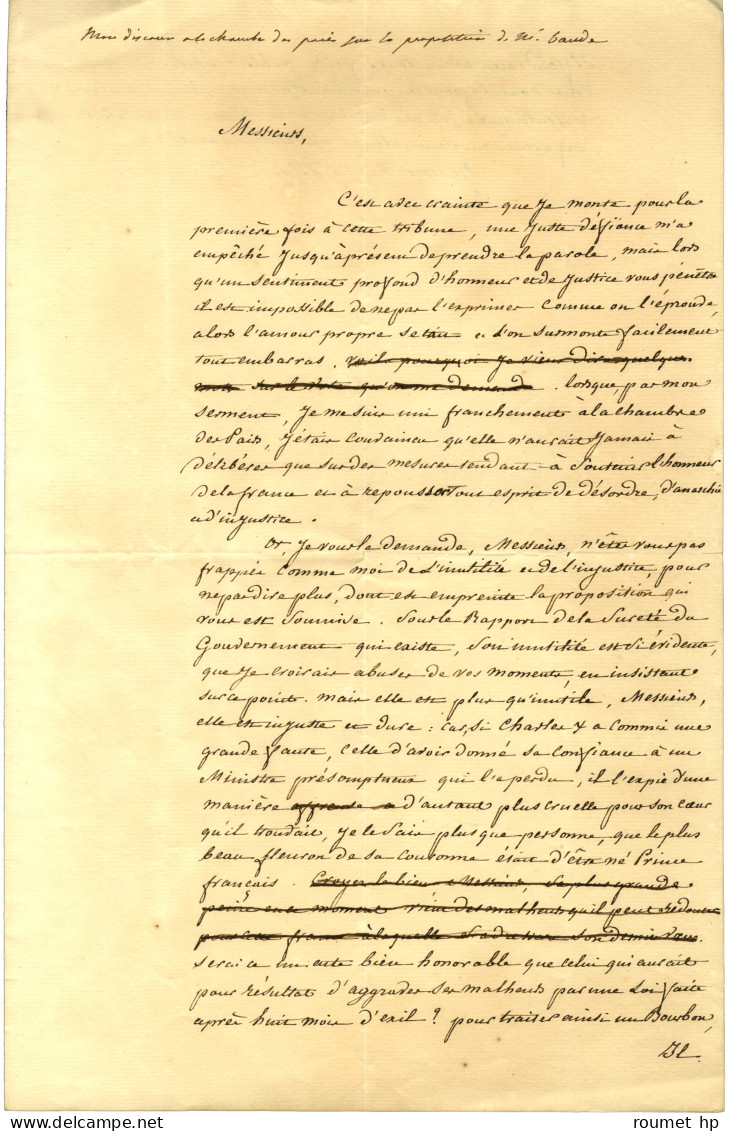 Mon discour a la chambre des pairs sur la proposition de Mr. Baude
Messieurs,
C'est avec crainte que je monte pour la
première fois à cette tribune, une juste défiance m'a
empêché jusqu'à présent de prendre la parole, mais lors
qu'un sentiment profond d'honneur et de justice vous pénètre
il est impossible de ne pas l'exprimer comme on l'éprouve,
alors l'amour propre se tait et l'on surmonte facilement
tout embarras, voilà pourquoi je viens dire quelques
mots sur le vote qu'on me demande. lorsque, par mon
serment, je me suis uni franchement à la chambre
des Pairs, j'étais convaincu qu'elle n'aurait jamais à
délibérer que sur des mesures tendant à soutenir l'honneur
de la france et à repousser tout esprit de désordre, d'anarchie
et d'injustice.
Or, je vous le demande, Messieurs, n'ête vous pas
frappés comme moi de l'inutilité et de l'injustice, pour
ne pas dire plus, dont est empreinte la proposition qui
vous est soumise. Sous le Rapport de la Sureté du
Gouvernement qui existe, son inutilité est si évidente,
que je croirais abuser de vos moments, en insistant
sur ce point. mais elle est plus qu'inutile, Messieurs,
elle est injuste et dure : car, si Charles X a commis une
grande faute, celle d'avoir donné sa confiance à un
Ministre présomptueux qui l'a perdu, il l'expie d'une
manière affreuse et d'autant plus cruelle pour son cœur
qu'il trouvait, je le sais plus que personne, que le plus
beau fleuron de sa couronne était d'être né Prince
français. Croyez le bien Messieurs, sa plus grande
peine en ce moment vient des malheurs qu'il peut redouter
pour cette france à laquelle s'adressera son dernier vœu.
serait ce un acte bien honorable que celui qui aurait
pour résultat d'aggraver ses malheurs par une loi faite
après huit mois d'exil ? pour traiter ainsi un Bourbon,
Il
roumet hp